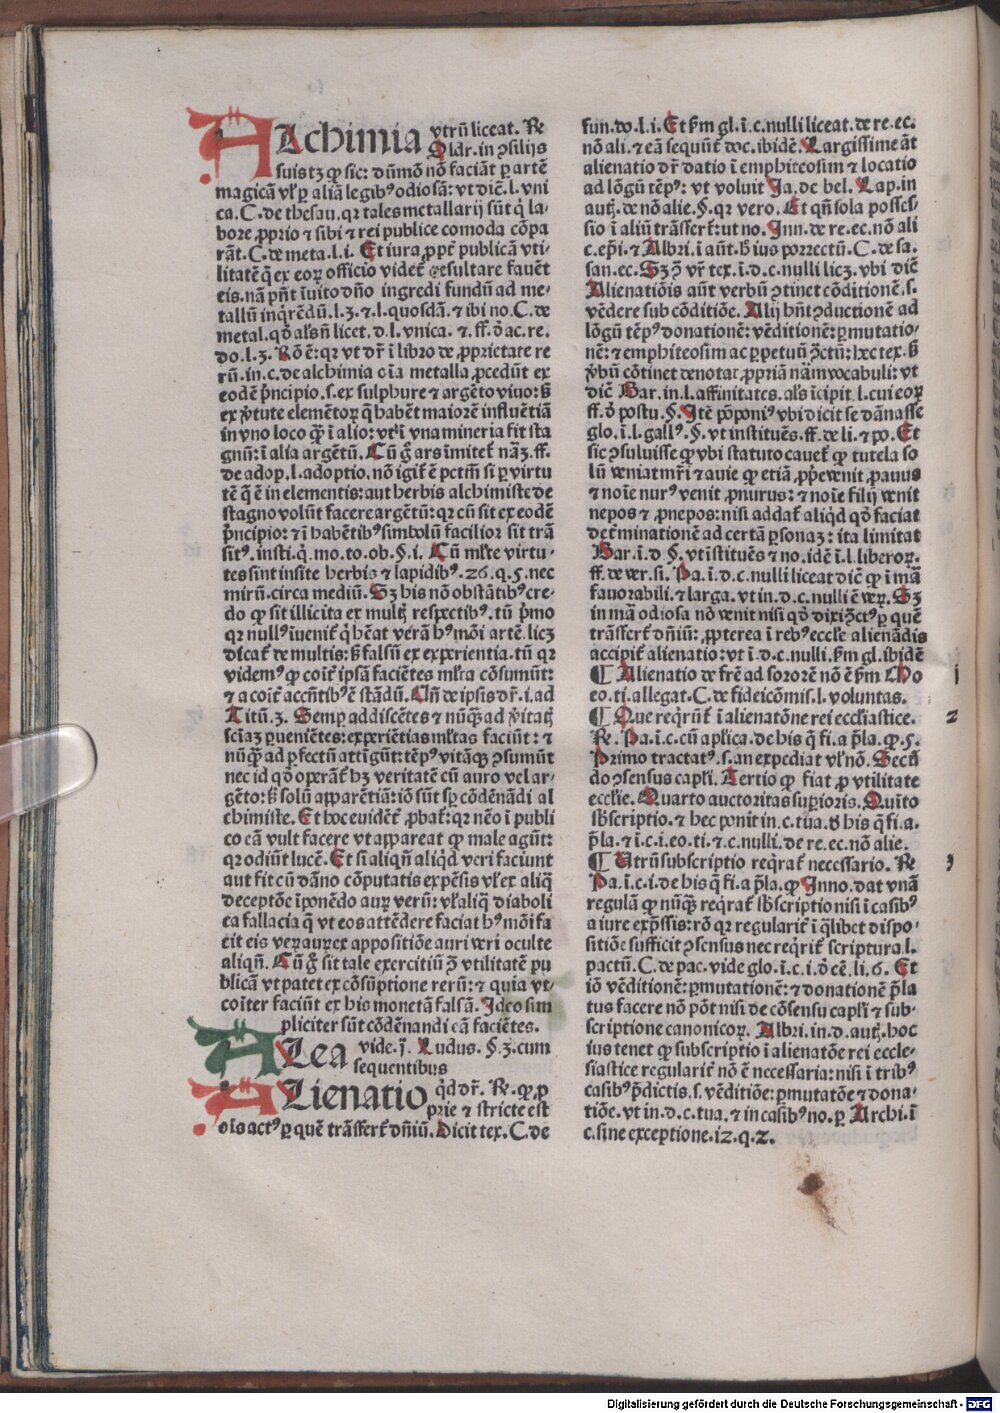 Alchimia vtrū liceat. Re
Oldr. in ↄsilijs
suis tꝫ ꝙ sic: dūmō nō faciāt ꝑ artē
magicā vł ꝑ aliā legibꝰ odiosā: vt dicē. l. vni
ca. C. de thesau. qꝛ tales metallarij sūt q̇ la-
bore ꝓprio ⁊ sibi ⁊ rei publice comoda cōpa
rāt. C. de meta. l. i. Et iura ꝓpt̄ publicā vti-
litatē q̄ ex eoꝝ officio videt̄ resultare fauēt
eis. nā pn̄t īuito dn̄o ingredi fundū ad me-
tallū inq̇rēdū. l. 3. ⁊ l. quosdā. ⁊ ibi no. C. de
metal. qd̄ al̓s n̄ licet. d. l. vnica. ⁊ ff. d̄ ac. re.
do. l. 3. Rō ē: qꝛ vt dr̄ ī libro de ꝓprietate re
rū. in. c. de alchimia oīa metalla ꝓcedūt ex
eodē pͥncipio. s. ex sulphure ⁊ argēto viuo: sꝫ
ex v̓tute elemētoꝝ q̄ habēt maiorē influētiā
in vno loco q̄ꝫ ī alio: vt si ī vna mineria fit sta
gnū: ī alia argētū. Cū g̊ ars imitet̄ nāꝫ. ff.
de adop. l. adoptio. nō igit̄ ē pctm̄ si ꝑ virtu
tē q̄ ē in elementis: aut herbis alchimiste de
stagno volūt facere argētū: qꝛ cū sit ex eodē
pͥncipio: ⁊ ī habētibꝰ simbolū facilior sit trā
sitꝰ. insti. q̇. mo. to. ob. §. i. Cū ml̓te virtu-
tes sint insite herbis ⁊ lapidibꝰ. 26. q. 5. nec
mirū. circa mediū. Sꝫ his nō obstātibꝰ cre-
do ꝙ sit illicita ex mult̄ respectibꝰ. tū pͥmo
qꝛ nullꝰ īuenit̄ q̇ hēat verā hꝰmōi artē. licꝫ
dicat̄ de multis: sꝫ falsū ex experientia. tū qꝛ
videmꝰ ꝙ coīt̄ ipsā faciētes ml̓ta cōsumūt:
⁊ a coīt̄ accn̄tibꝰ ē stādū. Vn̄ de ipsis dr̄. i. ad
Titū. 3. Semꝑ addiscētes ⁊ nūq̄ꝫ ad v̓itat̄
sciāꝫ ꝑuenientes: experiētias ml̓tas faciūt: ⁊
nūq̄ꝫ ad ꝑfectū attīgūt: tēpꝰ vitāqꝫ ↄsumūt
nec id qd̄ operāt̄ hꝫ veritatē cū auro vel ar-
gēto: sꝫ solū apparētiā: iō sūt sꝑ cōdēnādi al
chimiste. Et hoc euidēt̄ ꝓbat̄: qꝛ nēo ī publi
co eā vult facere vt appareat ꝙ male agūt:
qꝛ odiūt lucē. Et si aliqn̄ aliqd̄ veri faciunt
aut fit cū dāno cōputatis expēsis vł ex aliq̇
deceptōe īponēdo auꝝ verū: vł aliq̄ diaboli
ca fallacia q̄ vt eos attēdere faciat hꝰmōi fa
cit eis veꝝ auꝝ ex appositiōe auri veri oculte
aliqn̄. Cū g̊ sit tale exercitiū ꝯ̄ vtilitatē pu
blicā vt patet ex cōsūptione rerū: ⁊ quia vt-
coīter faciūt ex his monetā falsā. Ideo sim
pliciter sūt cōdēnandi eā faciētes.
Alea vide. j. Ludus. §. 3. cum
sequentibus
Alienatio qd̄ dr̄. Re. ꝙ ꝓ
prie ⁊ stricte est
oīs actꝰ ꝑ quē trāsfert̄ dn̄iū. Dicit tex. C. de
fun. do. l. i. Et ẜm gl. ī. c. nulli liceat. de re. ec.
nō ali. ⁊ eā sequūt̄ doc. ibidē. Largissime āt
alienatio dr̄ datio ī emphiteosim ⁊ locatio
ad lōgū tēpꝰ: vt voluit Ja. de bel. Lap. in
autꝫ. de nō alie. §. qꝛ vero. Et qn̄ sola posses-
sio ī aliū trāsfert̄: ut no. Inn. de re. ec. nō ali
c. ep̄i. ⁊ Albri. ī aūt. hꝰ ius porrectū. C. de sa.
san. ec. Sꝫ ꝯ̄ vr̄ tex. ī. d. c. nulli licꝫ. vbi dicē
Alienatiōis aūt verbū ↄtinet cōditionē. s.
vēdere sub cōditiōe. Alij hn̄t ↄductionē ad
lōgū tēpꝰ donationē: vēditionē: ꝑmutatio-
nē: ⁊ emphiteosim ac ꝑpetuū ꝯ̄ctū: hec tex. sꝫ
v̓bū cōtinet denotat ꝓpriā nām vocabuli: vt
dicē Bar. in. l. affinitates. al̓s īcipit. l. cui eoꝝ
ff. d̄ postu. §. Itē pōponiꝰ vbi dicit se dānasse
glo. ī. l. gallꝰ. §. vt instituēs. ff. de li. ⁊ po. Et
sic ↄsuluisse ꝙ vbi statuto cauet̄ ꝙ tutela so
lū veniat mr̄i ⁊ auie ꝙ etiā ꝓp̄e venit ꝓauus
⁊ noīe nurꝰ venit ꝓnurus: ⁊ noīe filij venit
nepos ⁊ ꝓnepos: nisi addat̄ aliqd̄ qd̄ faciat
det̄minationē ad certā ꝑsonaꝫ: ita limitat
Bar. ī. d. §. vt īstituēs ⁊ no. idē ī. l. liberoꝝ.
ff. de ver. si. Pa. ī. d. c. nulli liceat dicē ꝙ ī mā
fauorabili. ⁊ larga. vt in. d. c. nulli ē veꝝ. Sꝫ
in mā odiosa nō venit nisi qd̄ dixi ꝯ̄ctꝰ ꝑ quē
trāsfert̄ dn̄iū: ꝓpterea ī rebꝰ eccl̓ie alienādis
accipit̄ alienatio: vt ī. d. c. nulli. ẜm gl. ibidē
¶ Alienatio de fr̄e ad sororē nō ē ẜm Mo i
eo. ti. allegat. C. de fideicōmis. l. voluntas.
¶ Que reqrūt̄ ī alienatōne rei eccl̓iastice. 2
Re. Pa. ī. c. cū apl̓ica. de his q̄ fi. a p̄la. ꝙ. 5.
Primo tractatꝰ. s. an expediat vł nō. Secū
do ↄsensus capl̓i. Tertio ꝙ fiat ꝓ vtilitate
eccl̓ie. Quarto auctoritas suꝑioris. Quīto
sb̄scriptio. ⁊ hec ponit in. c. tua. d̄ his q̄ fi. a.
p̄la. ⁊ ī. c. i. eo. ti. ⁊ c. nulli. de re. ec. nō alie.
¶ Utrū subscriptio reqrat̄ necessario. Re 3
Pa. ī. c. i. de his q̄ fi. a p̄la. ꝙ Inno. dat vnā
regulā ꝙ nūq̄ꝫ reqrat̄ sb̄scriptio nisi ī casibꝰ
a iure exp̄ssis: rō qꝛ regularit̄ ī q̄libet dispo-
sitiōe sufficit ↄsensus nec reqrit̄ scriptura. l.
pactū. C. de pac. vide glo. ī. c. i. d̄ cē. li. 6. Et
iō vēditionē: ꝑmutationē: ⁊ donationē p̄la
tus facere nō pōt nisi de cōsensu capl̓i ⁊ sub-
scriptione canonicoꝝ. Albri. in. d. autꝫ. hoc
ius tenet ꝙ subscriptio ī alienatōe rei eccle-
siastice regularit̄ nō ē necessaria: nisi ī tribꝰ
casibꝰ p̄dictis. s. vēditiōe: ꝑmutatōe ⁊ dona-
tiōe. vt in. d. c. tua. ⁊ in casibꝰ no. ꝑ Archi. ī
c. sine exceptione. 12. q. 2.
Digitalisierung gefördert durch die Deutsche Forschungsgemeinschaft - DFG